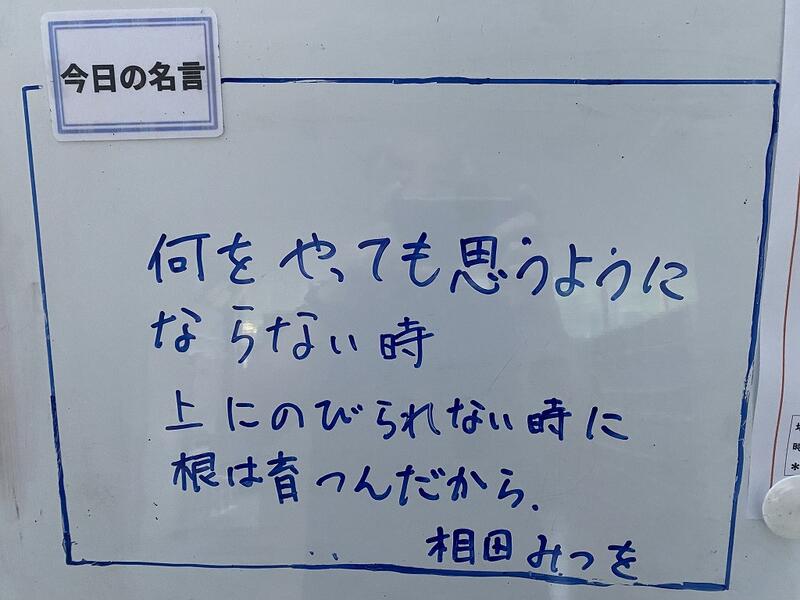 今日の名言
何をやっても思うように
ならない時
上にのびられない時に
根は育つんだから.
相田みつを